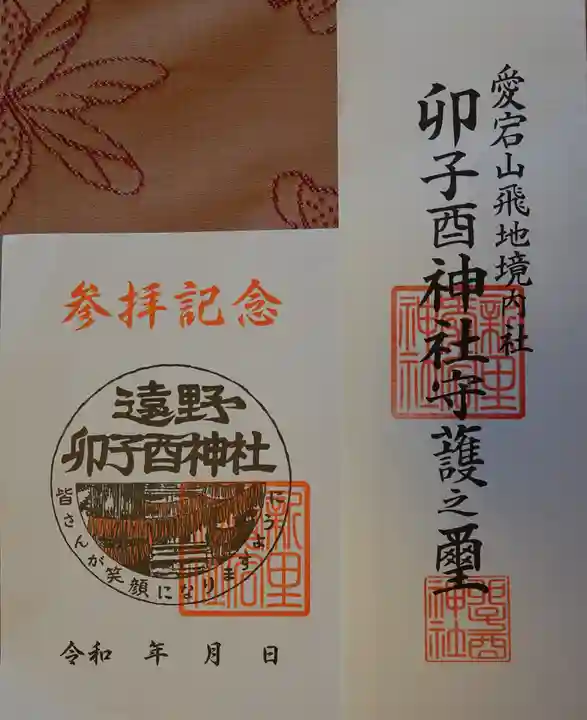 愛宕山飛地境内社
卯子酉神社守護之璽
参拝記念
遠野
卯子酉神社
皆さんが笑顔になりますように
令和 年 月 日